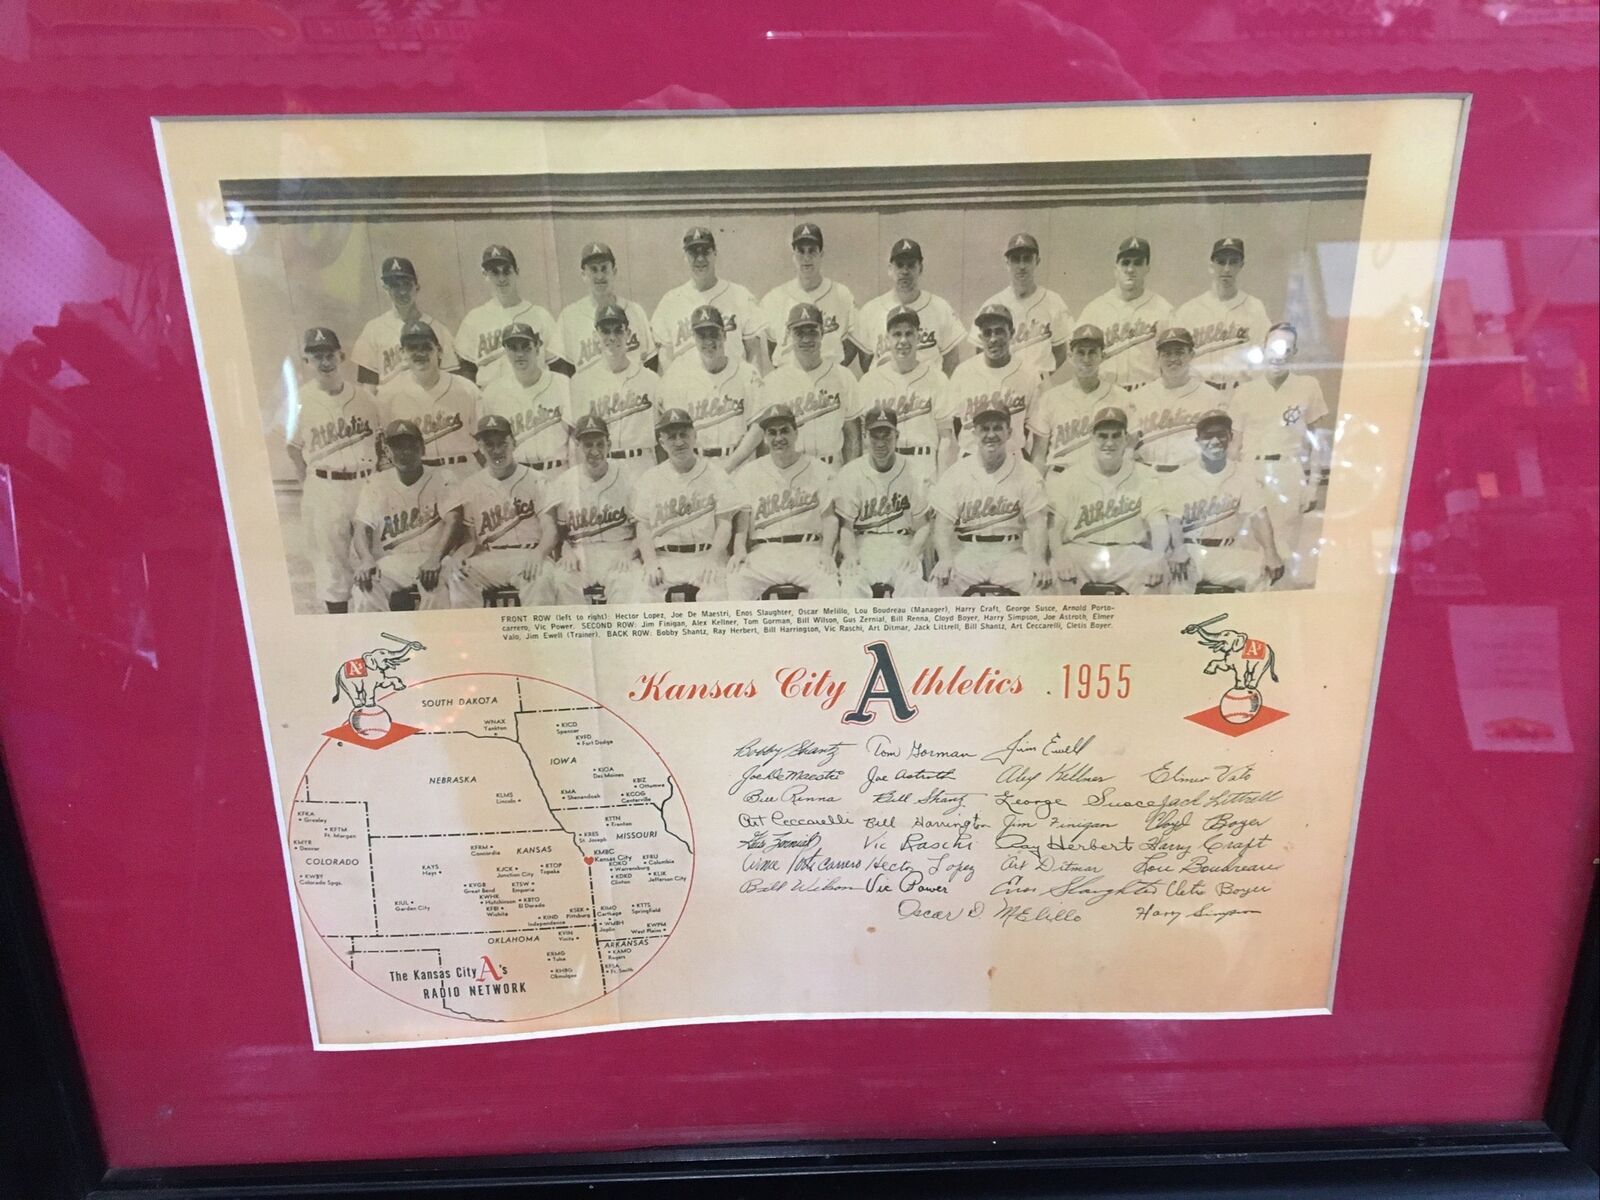 FRONT ROW (left to right): Hector Lopez, Joe De Maestri, Enos Slaughter, Oscar Melillo, Lou Boudreau (Manager), Harry Craft, George Susce, Arnold Porto-
carrero, Vic Power. SECOND ROW: Jim Finigan, Alex Kellner, Tom Gorman, Bill Wilson, Gus Zernial, Bill Renna, Cloyd Boyer, Harry Simpson, Joe Astroth, Elmer
Valo, Jim Ewell (Trainer). BACK ROW: Bobby Shantz, Ray Herbert, Bill Harrington, Vic Raschi, Art Ditmar, Jack Littrell, Bill Shantz, Art Ceccarelli, Cletis Boyer.
Kansas City Athletics 1955
A's
A's
SOUTH DAKOTA
WNAX
Yankton
KICD
Spencer
KVFD
Fort Dodge
IOWA
KIOA
Des Moines
NEBRASKA
KBIZ
Ottumwa
KMA
Shenandoah
KCOG
Centerville
KLMS
Lincoln
KFKA
Greeley
KFTM
Ft. Morgan
KTTN
Trenton
KRES
St. Joseph
MISSOURI
KMYR
Denver
COLORADO
KWBY
Colorado Spgs.
KFRM
Concordia
KANSAS
KMBC
Kansas City
KOKO
Warrensburg
KFRU
Columbia
KAYS
Hays
KJCK
Junction City
KTOP
Topeka
KDKD
Clinton
KLIK
Jefferson City
KVGB
Great Bend
KTSW
Emporia
KWHK
Hutchinson
KBTO
El Dorado
KIUL
Garden City
KFBI
Wichita
KIND
Independence
KSEK
Pittsburg
KIMO
Carthage
KTTS
Springfield
WMBH
Joplin
KWPM
West Plains
OKLAHOMA
KVIN
Vinita
ARKANSAS
KAMO
Rogers
KRMG
Tulsa
KHBG
Okmulgee
KFSA
Ft. Smith
The Kansas City A's
RADIO NETWORK
Bobby Shantz Tom Gorman Jim Ewell
Joe De Maestri Joe Astroth Alex Kellner Elmer Valo
Bill Renna Bill Shantz George Susce Jack Littrell
Art Ceccarelli Bill Harrington Jim Finigan Cloyd Boyer
Gus Zernial Vic Raschi Ray Herbert Harry Craft
Arnie Portocarrero Hector Lopez Art Ditmar Lou Boudreau
Bill Wilson Vic Power Enos Slaughter Cletis Boyer
Oscar D Melillo Harry Simpson